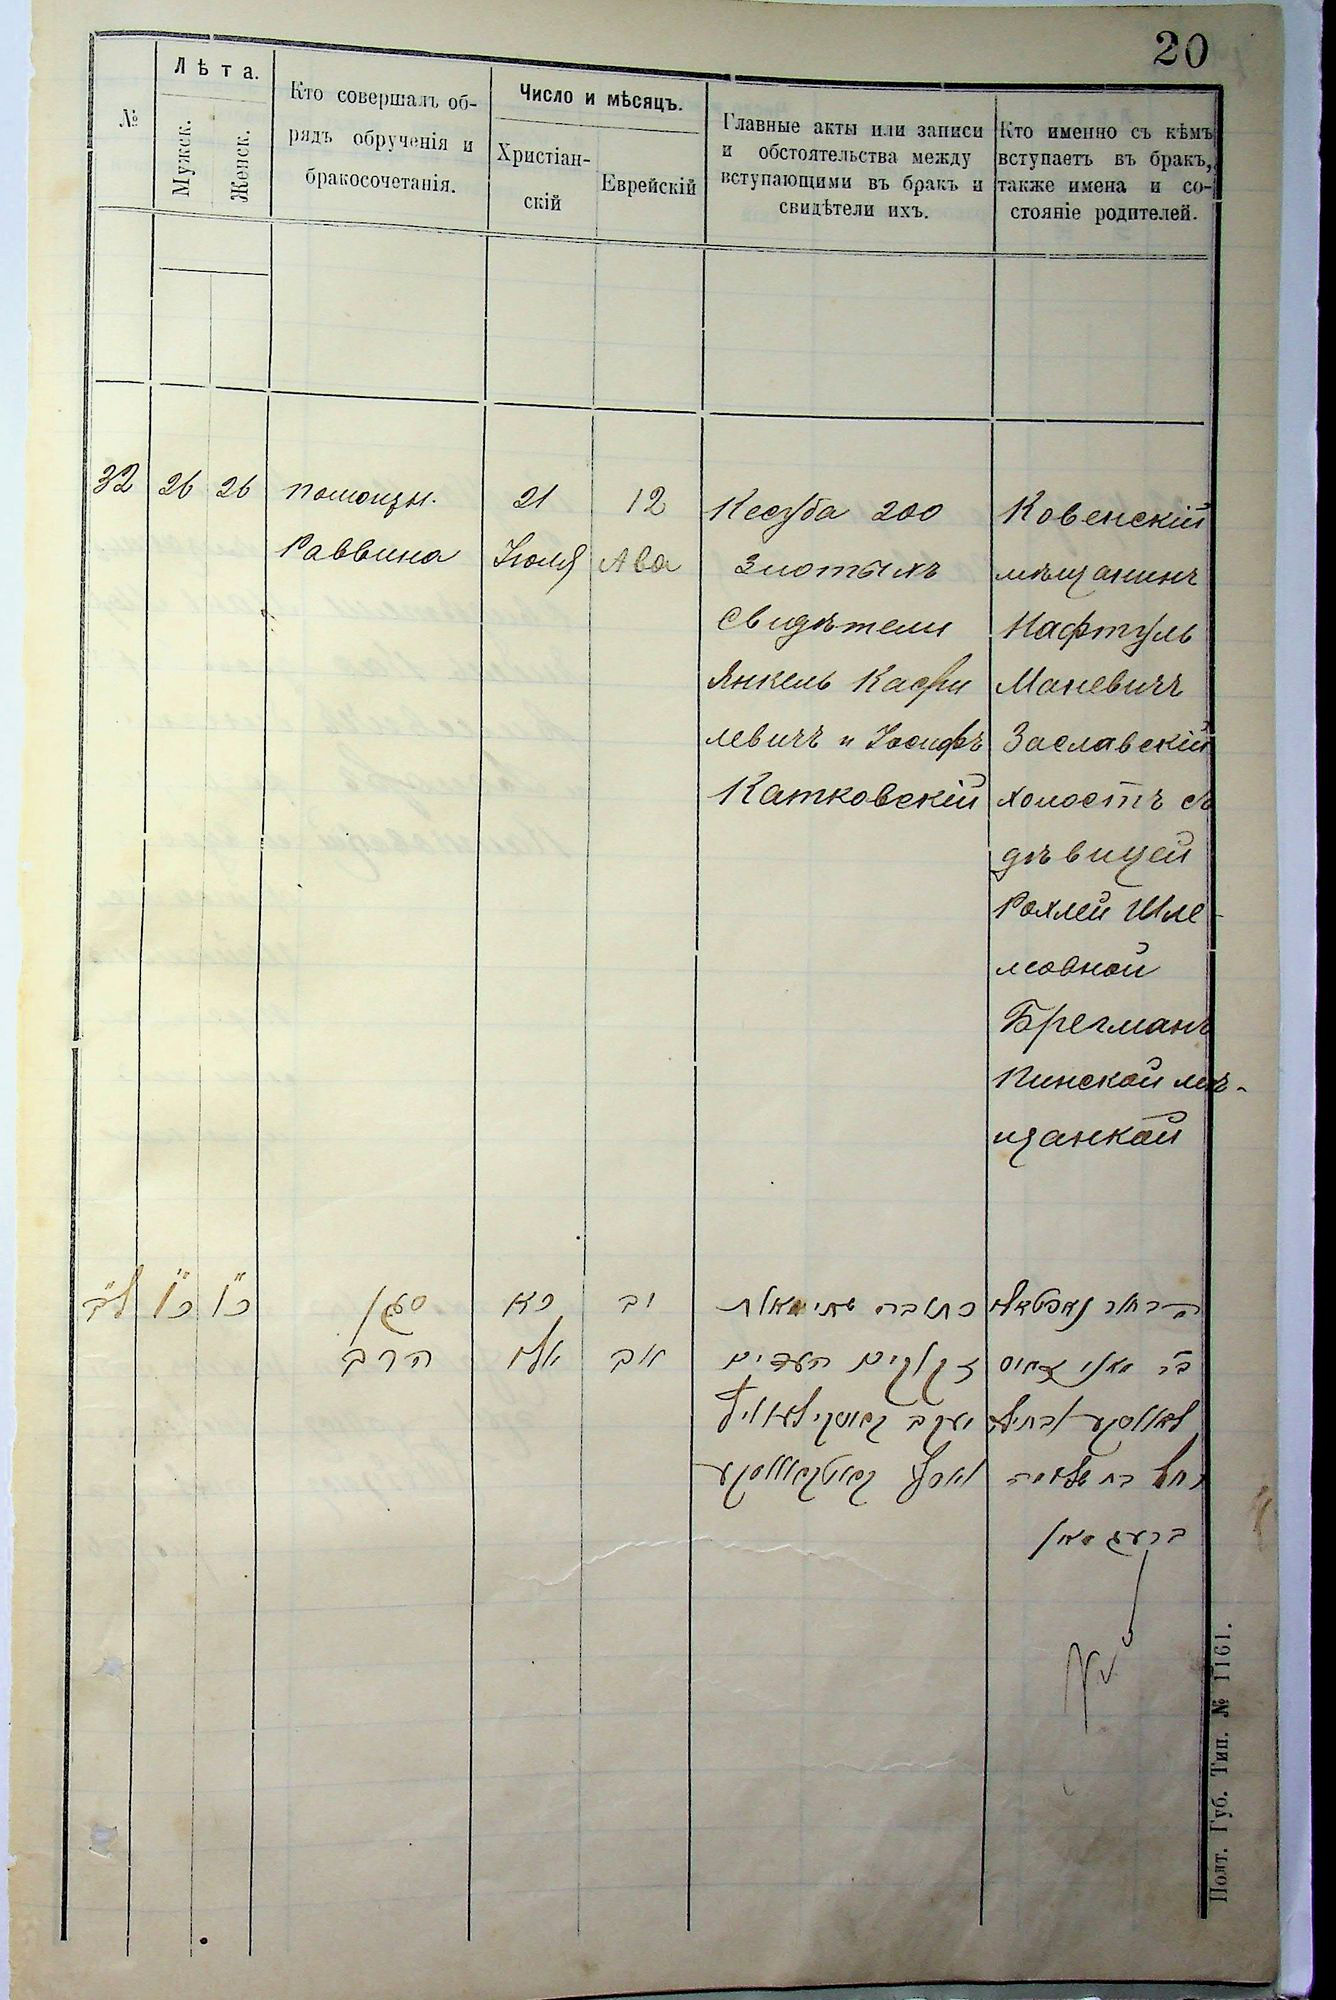 20
№
Лѣта.
Мужск.
Женск.
Кто совершалъ об-
рядъ обрученія и
бракосочетанія.
Число и мѣсяцъ.
Христіан-
скій
Еврейскій
Главные акты или записи
и обстоятельства между
вступающими въ бракъ и
свидѣтели ихъ.
Кто именно съ кѣмъ
вступаетъ въ бракъ,
также имена и со-
стояніе родителей.
32
26
26
помощн.
Раввина
21
Іюля
12
Ава
Кесуба 200
злотыхъ
свидѣтели
Янкель
левичъ и Іосифъ
Катковскій
Ковенскій
мѣщанинъ
Нафтуль
Маневичъ
Заславскій
холостъ съ
дѣвицей
Рохлей Шле-
мовной
Брегманъ
Пинской мѣ-
щанкой
ל״ב
כ״ו
כ״ו
סגן
הרב
כא
יולי
יב
אב
כתובה מאתים
זקוקים העדים
יעקב
יוסף קאטקאווסקי
הבחור נאפטאלי
ב״ר
רחל בת שלמה
ברעגמאן
Полт. Губ. Тип. № 1161.